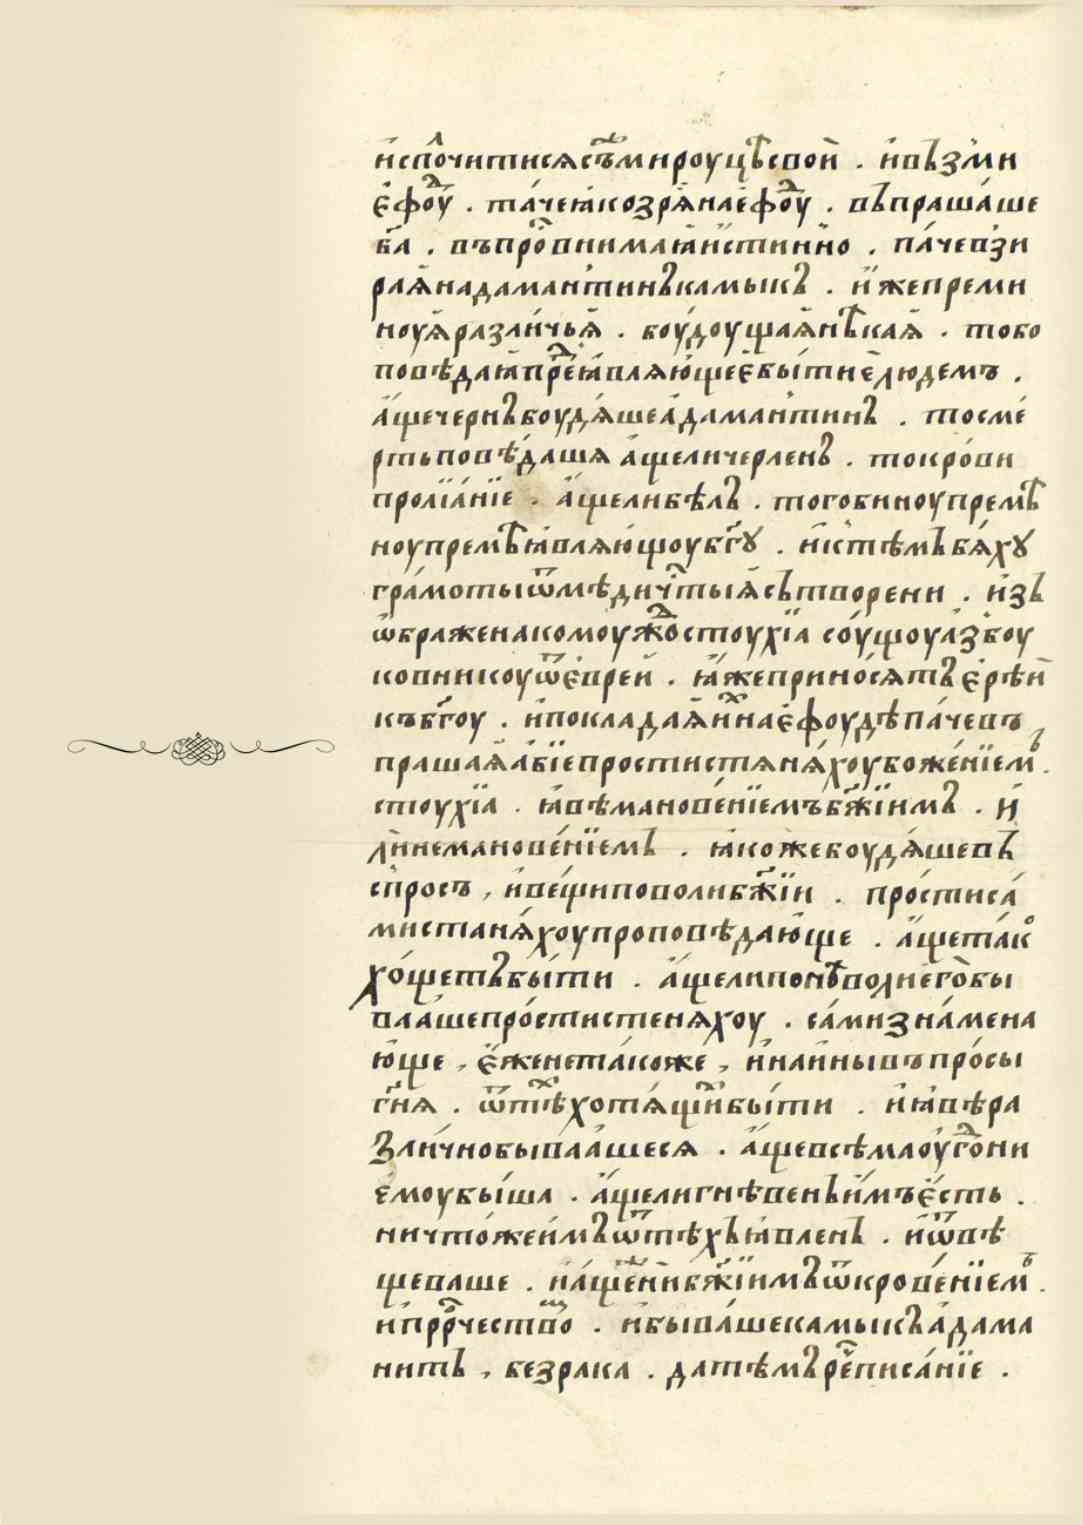 и҆спⷧ҇очитисѧсъⷨмироуцѣ̑свои҆ . и҆въз̾ми
е҆фоуⷣ . та́чеꙗ҆козрѧ̀нае҆фоуⷣ . въпраша́ше
б҃а . въпроⷭ҇внимаꙗ҆и҆стинно . па́чевзи
раѧ̀надаман̾тинъкамыкъ . и҆́жепреми
ноуѧ̀разли́чьѧ̀ . боу́доущаѧ̀нѣ̑каѧ̀ . тобо
повѣдаꙗ҆преⷣꙗ҆влѧю҆щее҆бы́тие҆людемъ .
а҆́щечернъбоудѧ́шеа҆даман̾тинъ . тосме́
ртьповѣ́дашѧ а҆́щеличерленъ . токро́ви
пролїа́нїе . а҆́щелибѣлъ . тогобиноупремѣ̑
ноупремѣ̑ꙗ҆влѧю҆щоубг҃ꙋ . и҆к̾тѣмъбѧ́хꙋ
гра́мотыѿмѣдичⷭ҇тыѧ̀сътворени . и҆зъ
ѡ҆браженакомоуждⷣостоухїа соу́щоуаз̾боу
ковникоуѿе҆врей . ꙗ҆́жеприно́сѧтъе҆рѣи
къбг҃оу . и҆покладаѧ̀иⷯнае҆фоудѣпа́чевъ
прашаѧ̀а҆бїепростистѧнѧ́хоубоже́нїемъ .
стоухїа . ꙗ҆вѣманове́нїемъбж҃їимъ . и҆́
лѝнеманове́нїемъ . ꙗ҆кожебоудѧ́шевъ
спросъ , и҆ве́щиповолибж҃їи . про́стиса́
мистанѧ́хоупроповѣдаю҆ще . а҆́щета́кⷪ҇
хо́щетъбы́ти . а҆́щелипонⷪ҇воднег̀обы
вааше про́стистенѧхоу . са́мизна́мена
ю҆́ще , е҆́женета́коже , и҆наины въпро́сы
гн҃ѧ . ѿтѣⷯхотѧ́щиⷯбы́ти . и҆ꙗ҆вѣра
зли́чнобываа҆шесѧ . а҆́щевсѣмаоу҆гоⷣни
е҆моубы́ша . а҆́щелигнѣвенъи҆́мъе҆́сть .
ничто́жеи҆́мъѿтѣхъꙗ҆вленъ . и҆ѿвѣ
щеваше . и҆а́щеⷩ҇ибж҃їимъѿкрове́нїемъ .
и҆прⷪ҇рчествⷪ҇о . и҆быва́шекамыкъа҆дама
нитъ , безрака . датѣмъреⷱ҇писа́нїе .